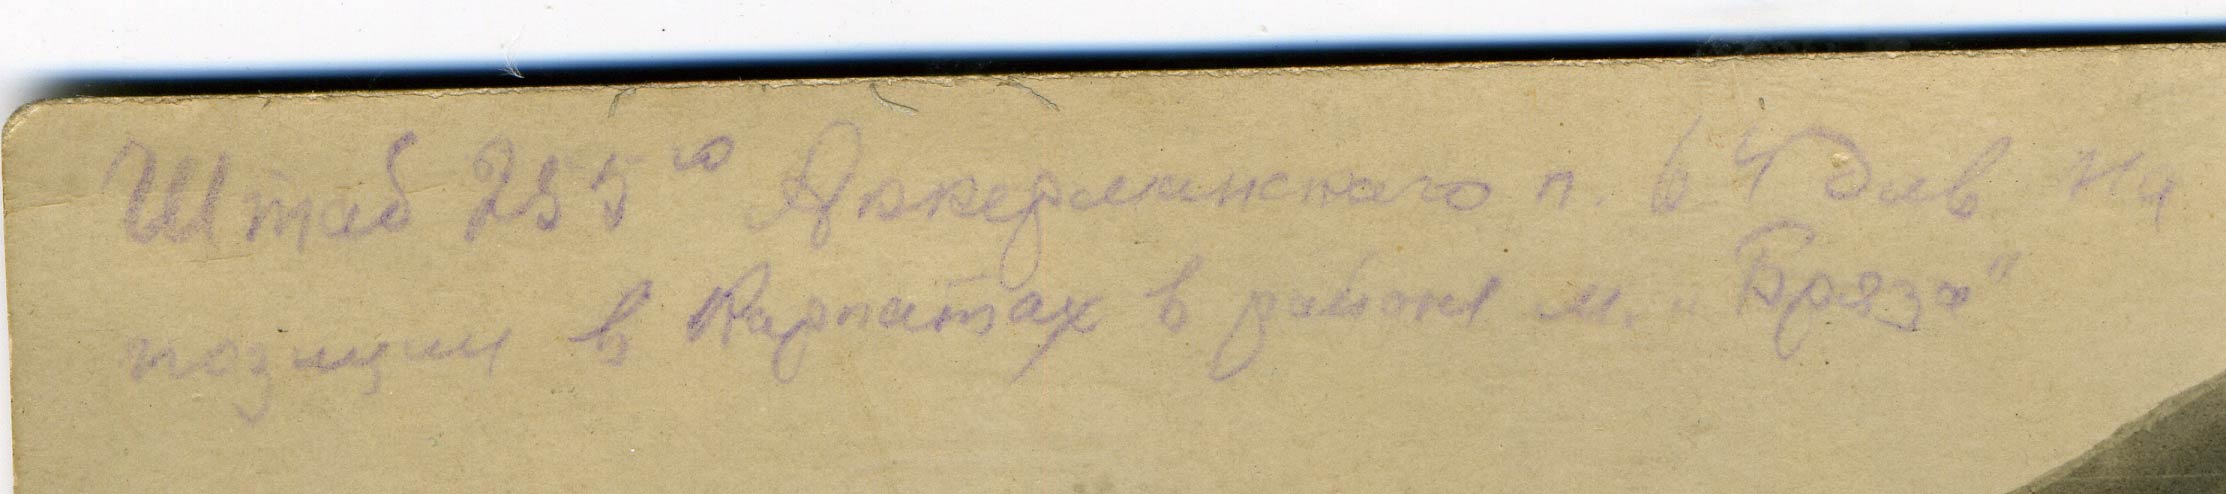 Штаб 255го Аккерманского п. 64 див на
позиции в Карпатах в районе м. „Бряза"